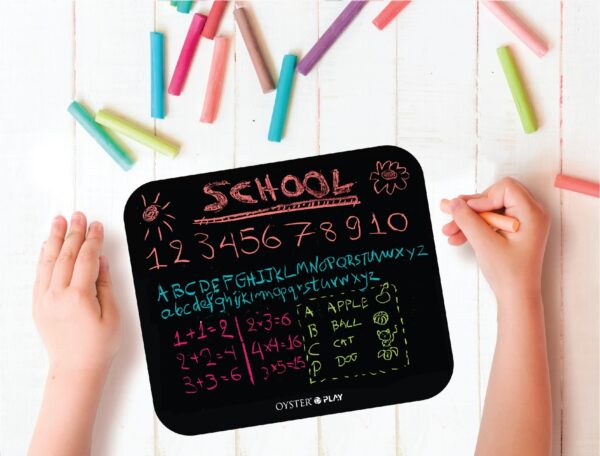 SCHOOL
1 2 3 4 5 6 7 8 9 10
ABCDEFGHIJKLMNOPQRSTUVWXYZ
abcdefghijklmnopqrstuvwxyz
1+1=2
2+2=4
3+3=6
2×3=6
4×4=16
3×5=15
A APPLE
B BALL
C CAT
P DOG
OYSTER PLAY